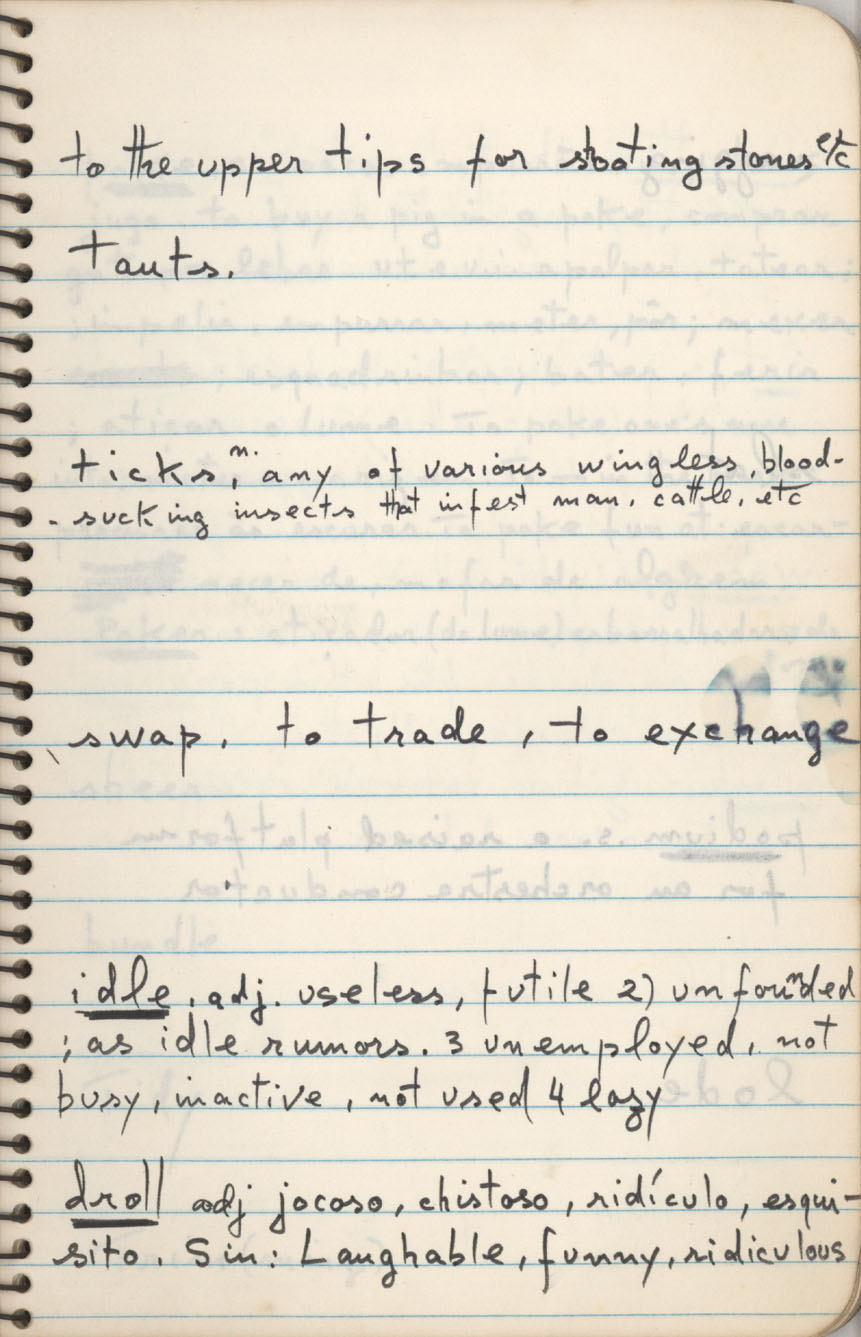 to the upper tips for shooting stones etc
Taunts.
ticks, n. any of various wingless, blood-
-sucking insects that infest man, cattle, etc
swap. to trade, to exchange
idle, adj. useless, futile 2) unfounded
; as idle rumors. 3 unemployed, not
busy, inactive, not used 4 lazy
droll adj jocoso, chistoso, ridículo, esqui-
sito. Sin: Laughable, funny, ridiculous